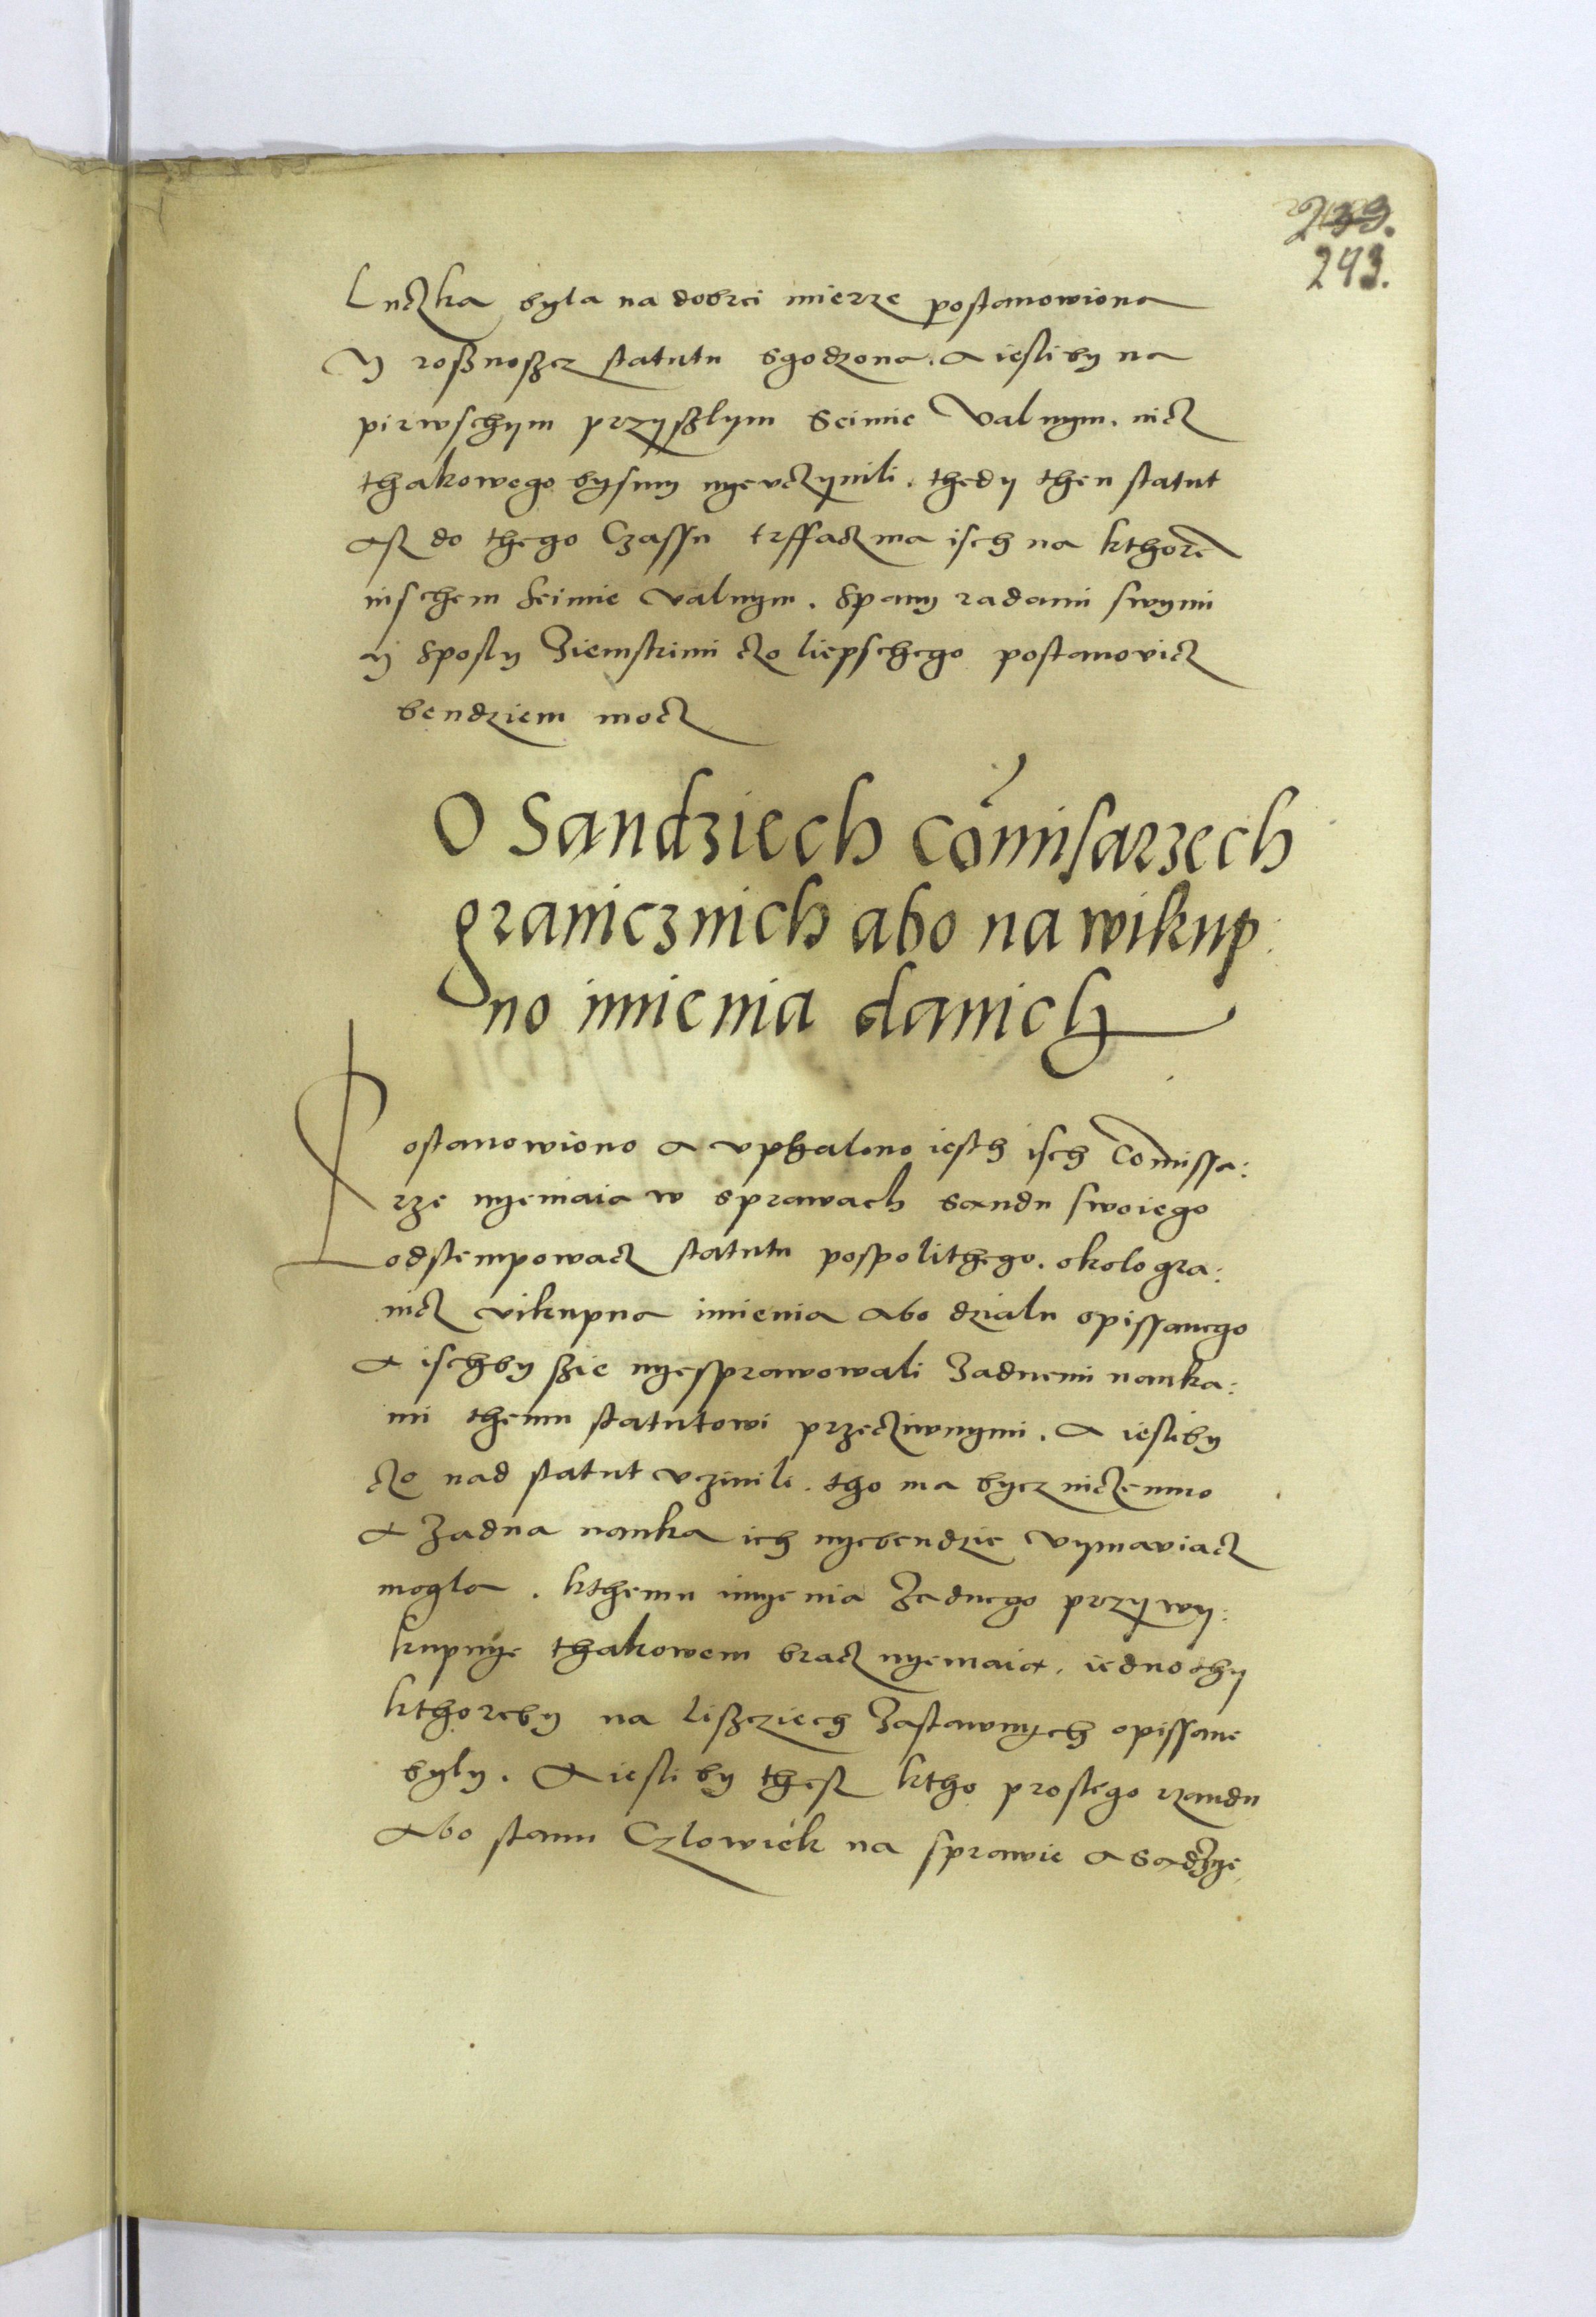 243.
Luczka byla na dobrei mierze postanowiona
y rosznoszcz statutu sgodzona. a iesliby na
pirwschym przyszlym Seimie Valnym. nicz
thakowego bysmy nyevczynili. thedy then statut
asz do thego Czassu trffacz ma isch na kthorē
inschem Seimie valnym. Spany radami swymi
y Sposly Ziemskimi czo liepschego postanovicz
bendziem mocz
O Sandziech cōmisarzech
granicznich abo na wikup
no imienia danich
Postanowiono a vphalono iesth isch Comissa:
rze nyemaia w sprawach sandu swoiego
odstempowacz statutu pospolithego. okolo gra:
nicz vikupna imienia abo dzialu opissanego
a ischby szie nyesprawowali Zadnemi nauka:
mi themu statutowi przecziwnymi. a iesliby
czo nad statut vczinili. tho ma bycz niczemno
a Zadna nauka ich nyebendzie vymaviacz
mogla. kthemu imyenia Zadnego przy wy:
kupnye thakowem bracz nyemaia. iedno thy
kthoreby na liszcziech Zastawnych opissane
byly. A iesli by thesz ktho prostego rzandu
Abo stanu Czlowiek na sprawie a sadzye